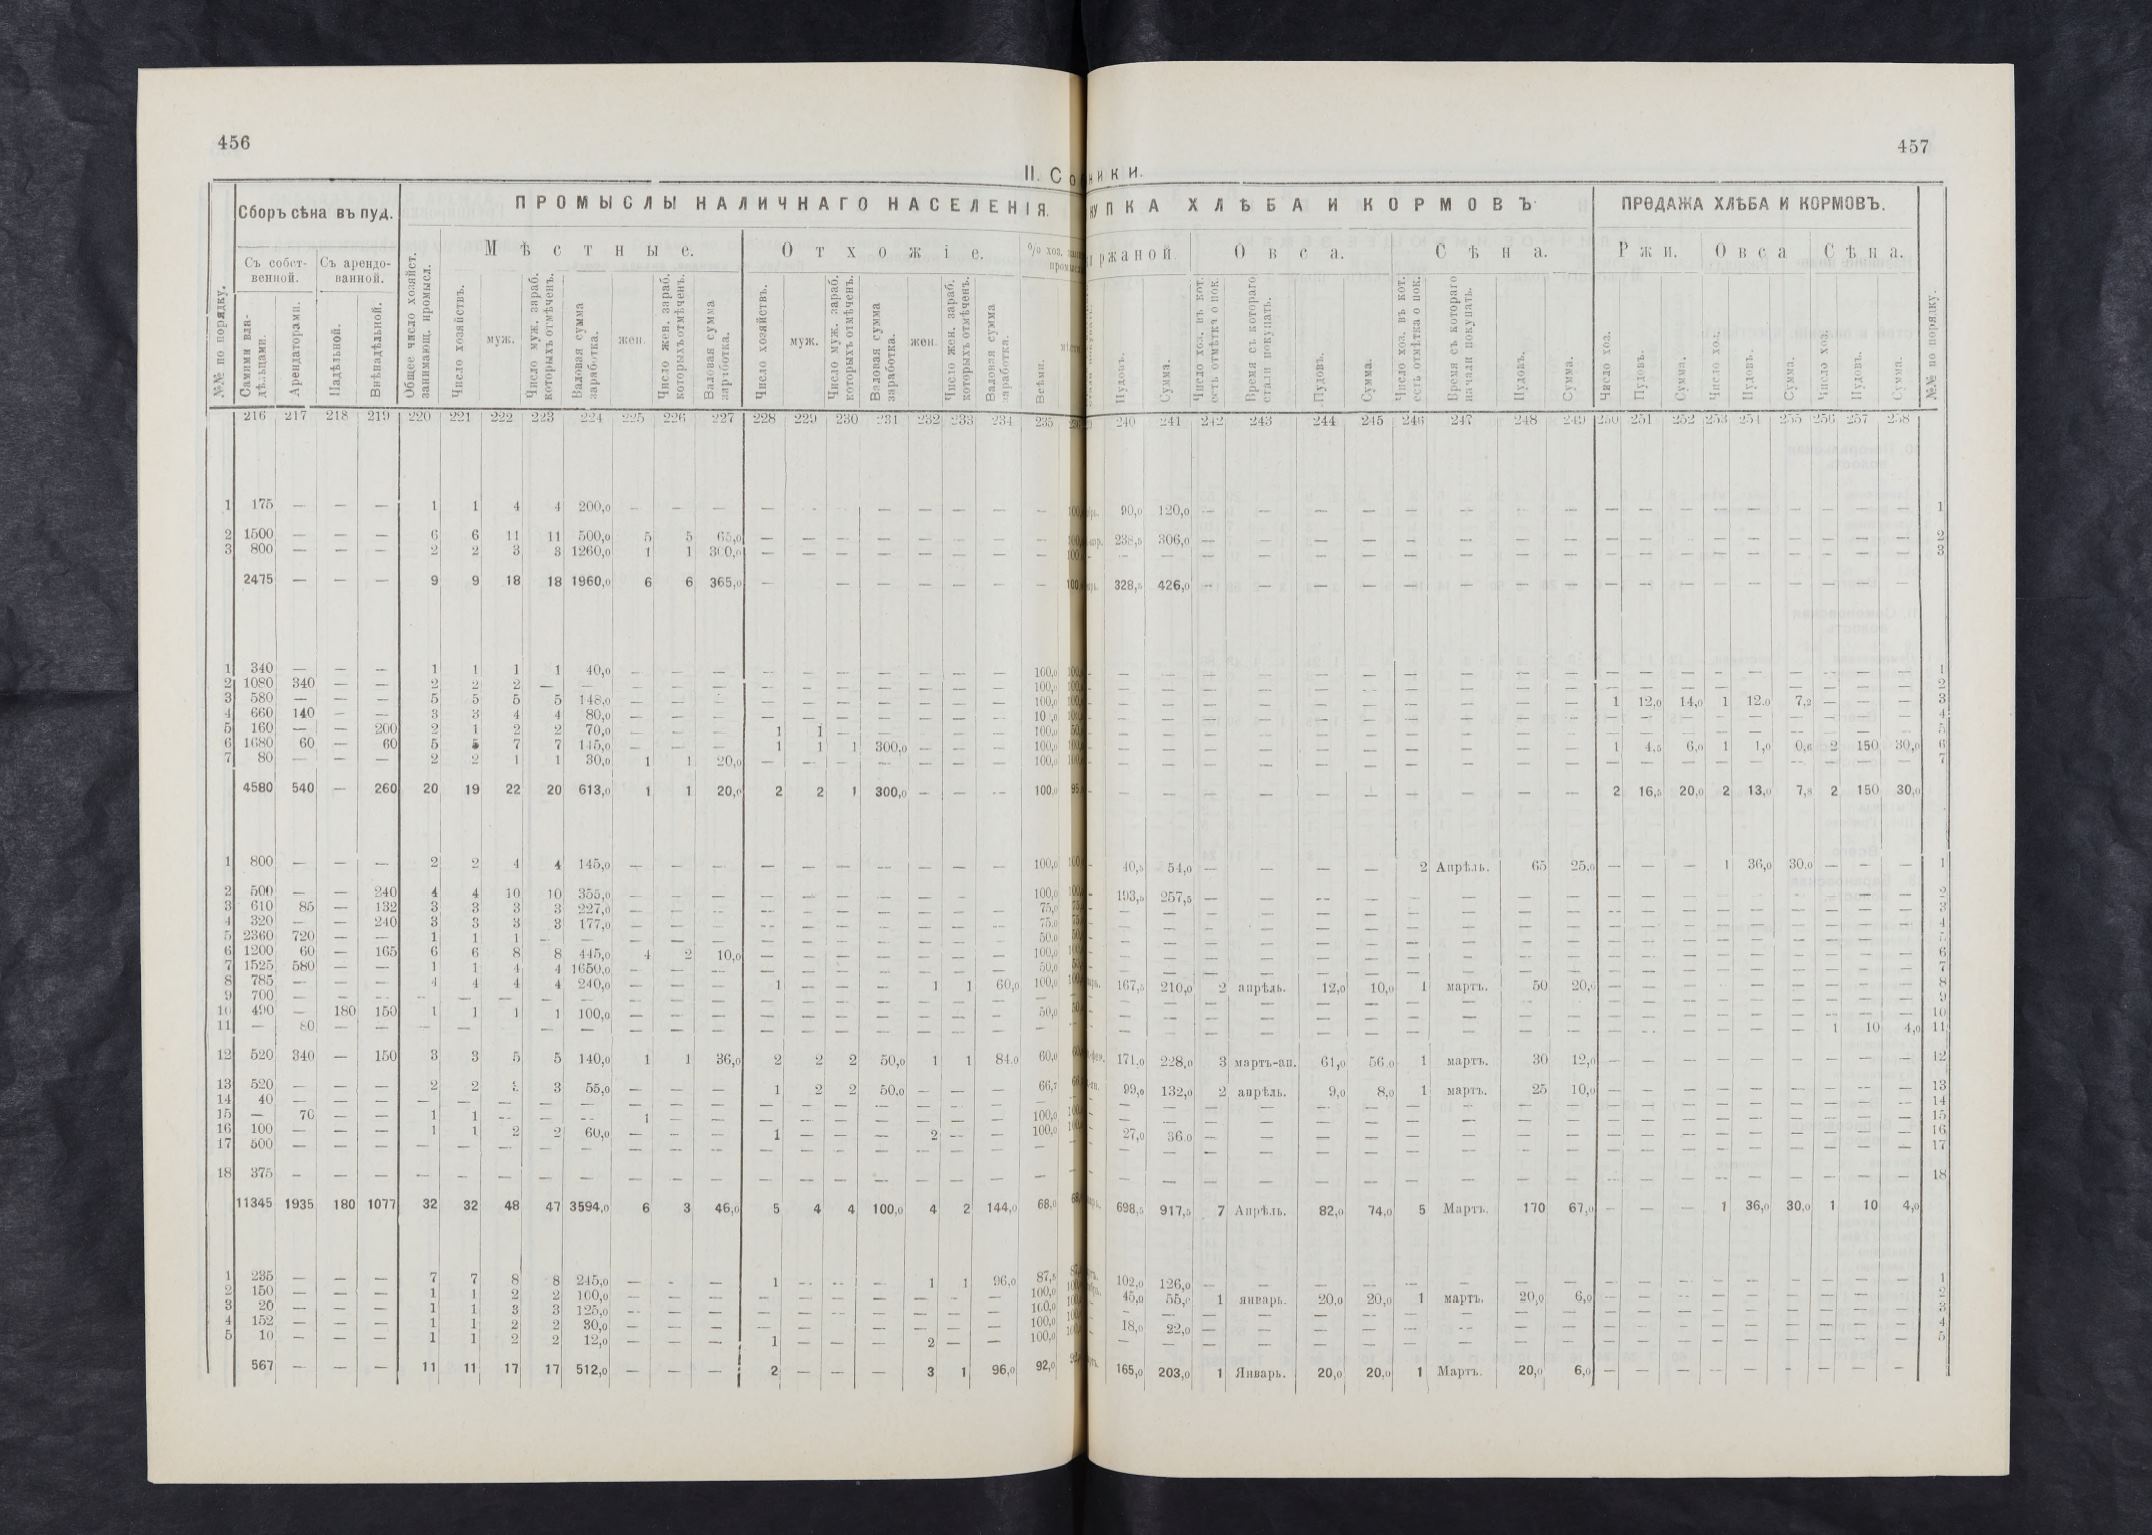 456
457
II. Со ники.
Сборъ сѣна въ пуд. ПРОМЫСЛЫ НАЛИЧНАГО НАСЕЛЕНІЯ.
УПКА ХЛѢБА И КОРМОВЪ ПРОДАЖА ХЛѢБА И КОРМОВЪ.
Мѣстные. Отхожіе. % хоз.
ржаной Овса. Сѣна. Ржи. Овса Сѣна.
Съ собственной. Съ арендованной.
№№ по порядку. Самими владѣльцами. Арендаторами. Надѣльной. Внѣнадѣльной. Общее число хозяйст. занимающ. промысл. Число хозяйствъ. муж. Число муж. зараб. которыхъ отмѣченъ. Валовая сумма заработка. жен. Число жен. зараб. которыхъ отмѣченъ. Валовая сумма заработка. Число хозяйствъ. муж. Число муж. зараб. которыхъ отмѣченъ. Валовая сумма заработка. жен. Число жен. зараб. которыхъ отмѣченъ. Валовая сумма заработка. Всѣми.
Пудовъ. Сумма. Число хоз. въ кот. есть отмѣтка о пок. Время съ котораго стали покупать. Пудовъ. Сумма. Число хоз. въ кот. есть отмѣтка о пок. Время съ котораго начали покупать. Пудовъ. Сумма. Число хоз. Пудовъ. Сумма. Число хоз. Пудовъ. Сумма. Число хоз. Пудовъ. Сумма. №№ по порядку.
216 217 218 219 220 221 222 223 224 225 226 227 228 229 230 231 232 233 234 235
240 241 242 243 244 245 246 247 248 249 250 251 252 253 254 255 256 257 258
1 175 — — — 1 1 4 4 200,0 — — — — — — — — — — —
90,0 120,0 — — — — — — — — — — — — — — — — — 1
2 1500 — — — 6 6 11 11 500,0 5 5 65,0 — — — — — — — —
238,5 306,0 — — — — — — — — — — — — — — — — — 2
3 800 — — — 2 2 3 3 1260,0 1 1 300,0 — — — — — — — —
— — — — — — — — — — — — — — — — — — — 3
2475 — — — 9 9 18 18 1960,0 6 6 365,0 — — — — — — —
328,5 426,0 — — — — — — — — — — — — — — — — —
1 340 — — — 1 1 1 1 40,0 — — — — — — — — — — 100,0
— — — — — — — — — — — — — — — — — — — 1
2 1080 340 — — 2 2 2 — — — — — — — — — — — — 100,0
— — — — — — — — — — — — — — — — — — — 2
3 580 — — — 5 5 5 5 148,0 — — — — — — — — — — 100,0
— — — — — — — — — — 1 12,0 14,0 1 12,0 7,2 — — — 3
4 660 140 — — 3 3 4 4 80,0 — — — — — — — — — — 10 ,0
— — — — — — — — — — — — — — — — — — — 4
5 160 — — 200 2 1 2 2 70,0 — — — 1 1 — — — — — 100,0
— — — — — — — — — — — — — — — — — — — 5
6 1680 60 — 60 5 5 7 7 145,0 — — — 1 1 1 300,0 — — — 100,0
— — — — — — — — — — 1 4,5 6,0 1 1,0 0,6 2 150 30,0 6
7 80 — — — 2 2 1 1 30,0 1 1 20,0 — — — — — — — 100,0
— — — — — — — — — — — — — — — — — — — 7
4580 540 — 260 20 19 22 20 613,0 1 1 20,0 2 2 1 300,0 — — — 100,0
— — — — — — — — — — 2 16,5 20,0 2 13,0 7,8 2 150 30,0
1 800 — — — 2 2 4 4 145,0 — — — — — — — — — — 100,0
40,5 54,0 — — — — 2 Апрѣль. 65 25,0 — — — 1 36,0 30,0 — — — 1
2 500 — — 240 4 4 10 10 355,0 — — — — — — — — — — 100,0
193,5 257,5 — — — — — — — — — — — — — — — — — 2
3 610 85 — 132 3 3 3 3 227,0 — — — — — — — — — — 75,0
— — — — — — — — — — — — — — — — — — — 3
4 320 — — 240 3 3 3 3 177,0 — — — — — — — — — — 75,0
— — — — — — — — — — — — — — — — — — — 4
5 2360 720 — — 1 1 1 — — — — — — — — — — — — 50,0
— — — — — — — — — — — — — — — — — — — 5
6 1200 60 — 165 6 6 8 8 445,0 4 2 10,0 — — — — — — — 100,0
— — — — — — — — — — — — — — — — — — — 6
7 1525 580 — — 1 1 4 4 1650,0 — — — — — — — — — — 50,0
— — — — — — — — — — — — — — — — — — — 7
8 785 — — — 4 4 4 4 240,0 — — — 1 — — — 1 1 60,0 100,0
167,5 210,0 2 апрѣль. 12,0 10,0 1 мартъ. 50 20,0 — — — — — — — — — 8
9 700 — — — — — — — — — — — — — — — — — — —
— — — — — — — — — — — — — — — — — — — 9
10 490 — 180 150 1 1 1 1 100,0 — — — — — — — — — — 50,0
— — — — — — — — — — — — — — — — — — — 10
11 — 80 — — — — — — — — — — — — — — — — — —
— — — — — — — — — — — — — — — — 1 10 4,0 11
12 520 340 — 150 3 3 5 5 140,0 1 1 36,0 2 2 2 50,0 1 1 84,0 60,0
171,0 228,0 3 мартъ-ап. 61,0 56,0 1 мартъ. 30 12,0 — — — — — — — — — 12
13 520 — — — 2 2 3 3 55,0 — — — 1 2 2 50,0 — — — 66,7
99,0 132,0 2 апрѣль. 9,0 8,0 1 мартъ. 25 10,0 — — — — — — — — — 13
14 40 — — — — — — — — — — — — — — — — — — —
— — — — — — — — — — — — — — — — — — — 14
15 — 70 — — 1 1 — — — 1 — — — — — — — — — 100,0
— — — — — — — — — — — — — — — — — — — 15
16 100 — — — 1 1 2 2 60,0 — — — 1 — — — 2 — — 100,0
27,0 36,0 — — — — — — — — — — — — — — — — — 16
17 500 — — — — — — — — — — — — — — — — — — —
— — — — — — — — — — — — — — — — — — — 17
18 375 — — — — — — — — — — — — — — — — — — —
— — — — — — — — — — — — — — — — — — — 18
11345 1935 180 1077 32 32 48 47 3594,0 6 3 46,0 5 4 4 100,0 4 2 144,0 68,0
698,5 917,5 7 Апрѣль. 82,0 74,0 5 Мартъ. 170 67,0 — — — 1 36,0 30,0 1 10 4,0
1 235 — — — 7 7 8 8 245,0 — — — 1 — — — 1 1 96,0 87,5
102,0 126,0 — — — — — — — — — — — — — — — — — 1
2 150 — — — 1 1 2 2 100,0 — — — — — — — — — — 100,0
45,0 55,0 1 январь. 20,0 20,0 1 мартъ. 20,0 6,0 — — — — — — — — — 2
3 20 — — — 1 1 3 3 125,0 — — — — — — — — — — 100,0
— — — — — — — — — — — — — — — — — — — 3
4 152 — — — 1 1 2 2 30,0 — — — — — — — — — — 100,0
18,0 22,0 — — — — — — — — — — — — — — — — — 4
5 10 — — — 1 1 2 2 12,0 — — — 1 — — — 2 — — 100,0
— — — — — — — — — — — — — — — — — — — 5
567 — — — 11 11 17 17 512,0 — — — 2 — — — 3 1 96,0 92,0
165,0 203,0 1 Январь. 20,0 20,0 1 Мартъ. 20,0 6,0 — — — — — — — — —